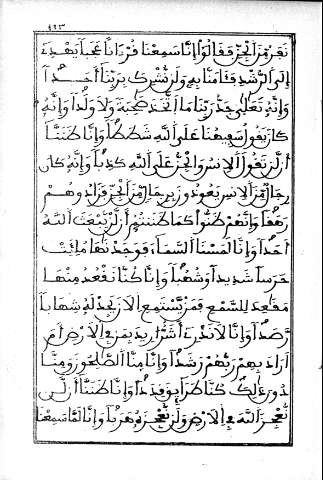 نفر من الجن فقالوا إنا سمعنا قرءانا عجبا يهدے
إلى الرشد فـٔامنا به ولن نشرك بربنا أحدا
وإنه تعلى جد ربنا ما اتخذ صحبة ولا ولدا وإنه
كان يقول سفيهنا على الله شططا وإنا ظننا
أن لن تقول الانس والجن على الله كذبا وإنه كان
رجال من الانس يعوذون برجال من الجن فزادوهم
رهقا وإنهم ظنوا كما ظننتم أن لن يبعث الله
أحدا وإنا لمسنا السماء فوجدنها ملئت
حرسا شديدا وشهبا وإنا كنا نقعد منها
مقعد للسمع فمن يستمع الان يجد له شهابا
رصدا وإنا لا ندرے أشر اريد بمن في الارض أم
اراد بهم ربهم رشدا وإنا منا الصلحون ومنا
دون ذلك كنا طرايق قددا وإنا ظننا أن لن
نعجز الله في الارض ولن نعجزه هربا وإنا لما سمعنا